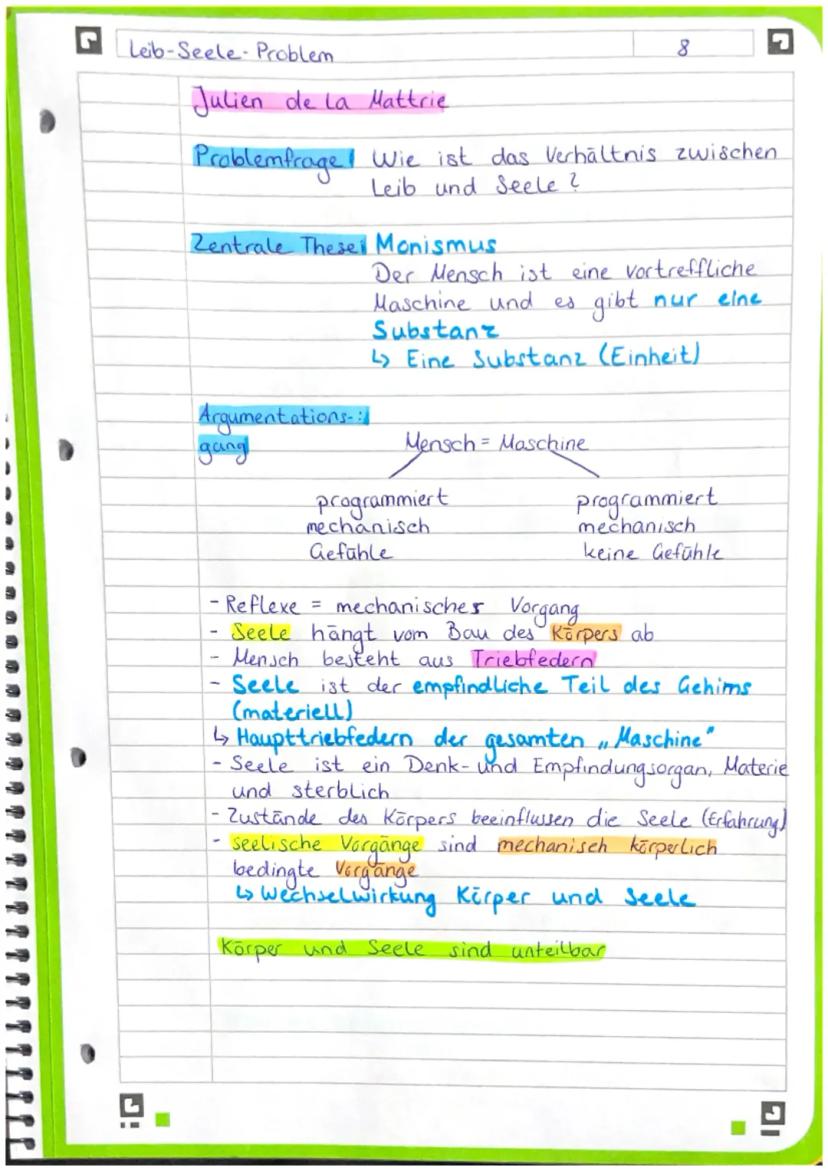 Leib-Seele-Problem 8
Julien de la Mattrie
Problemfrage: Wie ist das Verhältnis zwischen
Leib und Seele?
Zentrale These: Monismus
Der Mensch ist eine vortreffliche
Maschine und es gibt nur eine
Substanz
↳ Eine Substanz (Einheit)
Argumentations-:
gang
Mensch = Maschine
programmiert programmiert
mechanisch mechanisch
Gefühle keine Gefühle
- Reflexe = mechanisches Vorgang
- Seele hängt vom Bau des Körpers ab
- Mensch besteht aus Triebfedern
- Seele ist der empfindliche Teil des Gehirns
(materiell)
↳ Haupttriebfedern der gesamten „Maschine"
- Seele ist ein Denk- und Empfindungsorgan, Materie
und sterblich
- Zustände des Körpers beeinflussen die Seele (Erfahrung)
- seelische Vorgänge sind mechanisch körperlich
bedingte Vorgänge
↳ Wechselwirkung Körper und Seele
Körper und Seele sind unteilbar